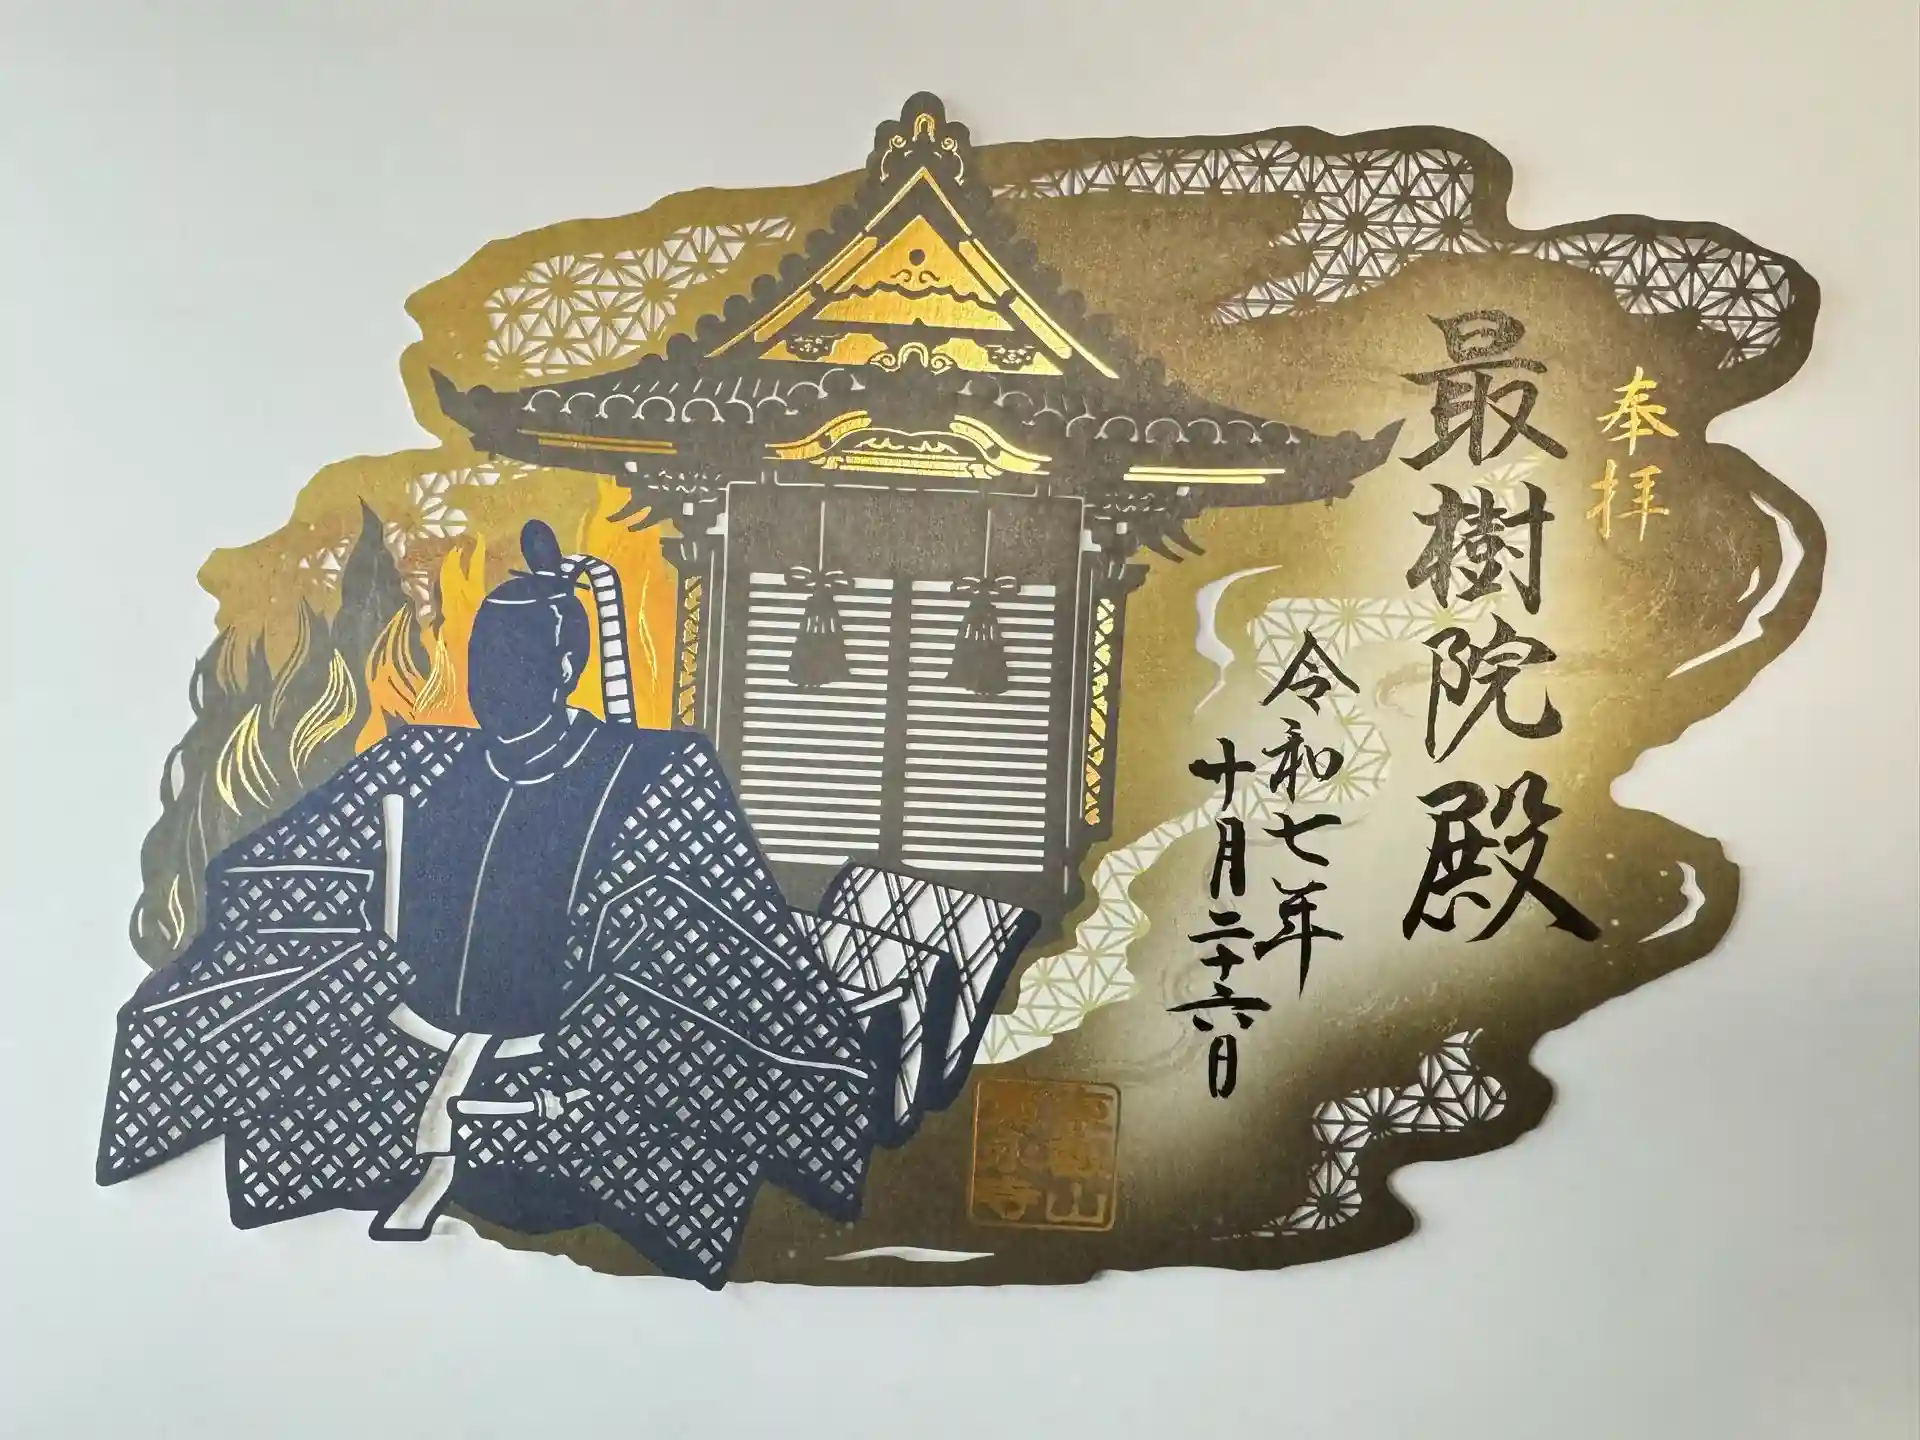 奉拝
最樹院殿
令和七年
十月二十六日